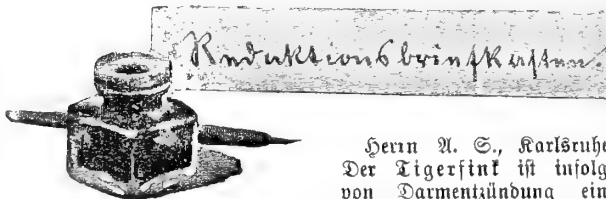 Redaktionsbriefkasten.
Herrn A. S., Karlsruhe
Der Tigerfink ist infolg
von Darmentzündung ein